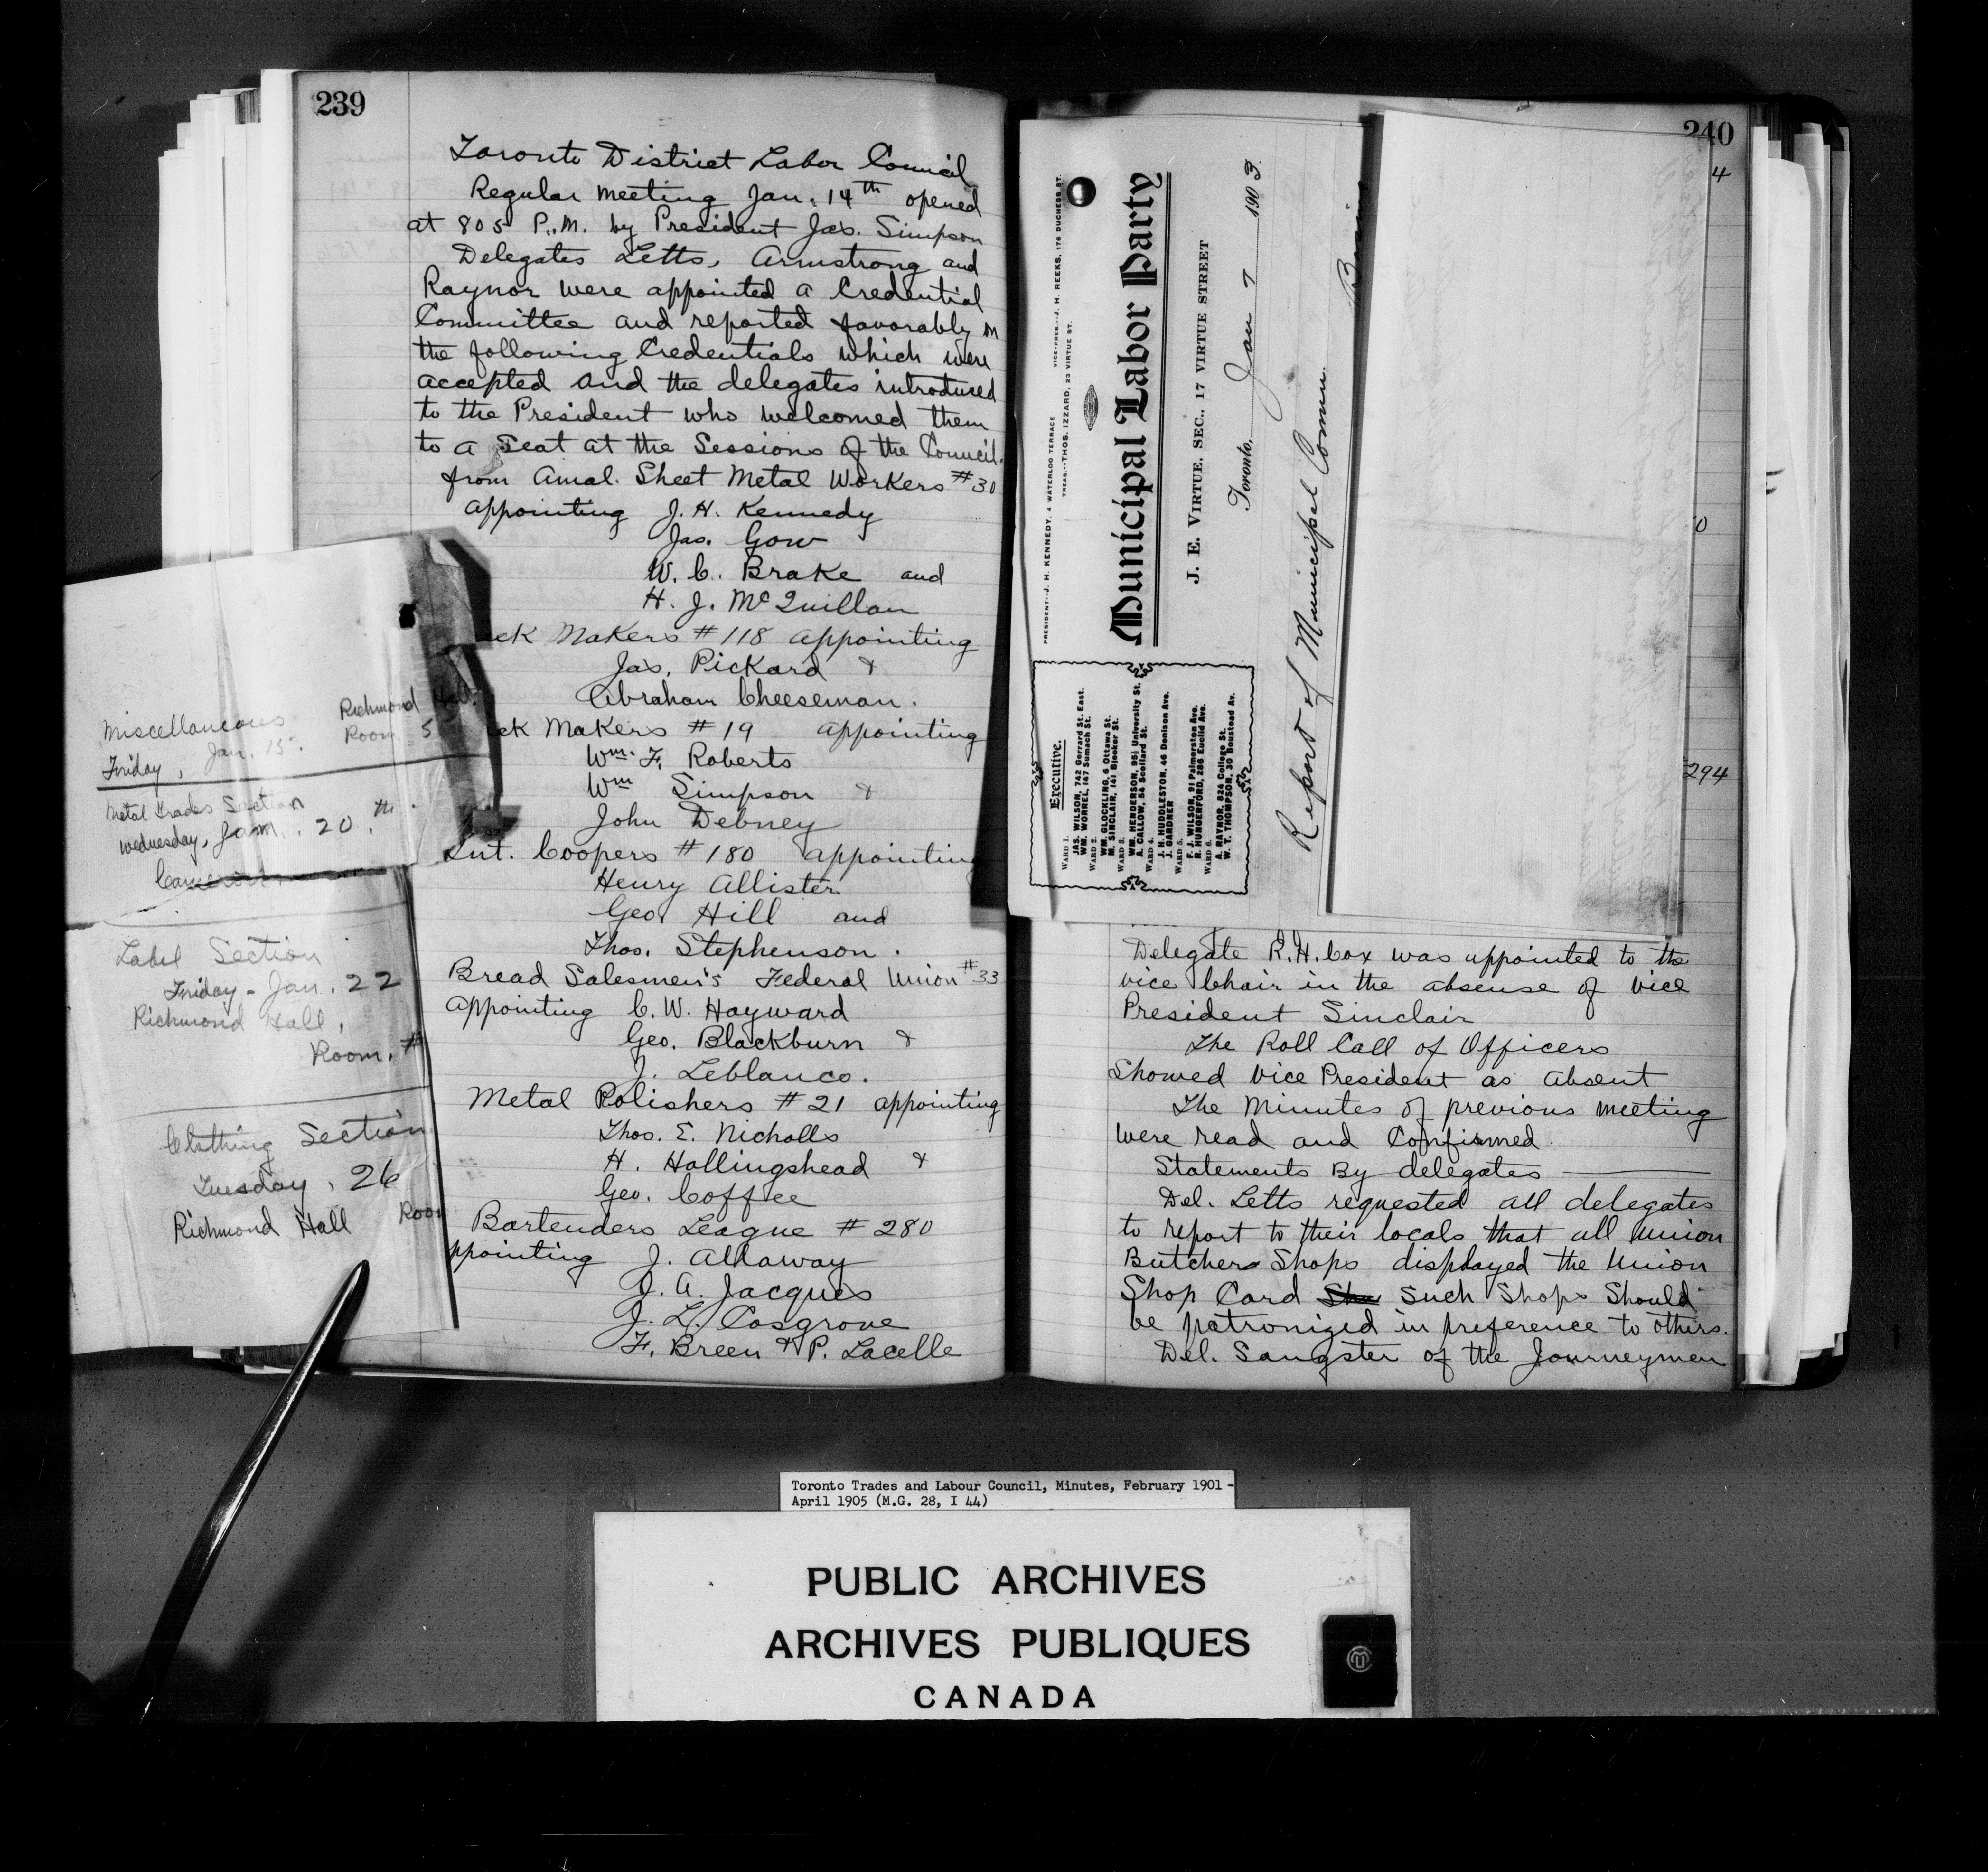 239
Toronto District Labor Council
Regular meeting Jan. 14th opened
at 805 P.M. by President Jas. Simpson
Delegates Letts, Armstrong and
Raynor were appointed a Credential
Committee and reported favorably on
the following Credentials which were
accepted and the delegates introduced
to the President who welcomed them
to a Seat at the Sessions of the Council.
from Amal. Sheet Metal Workers #30
appointing J. H. Kennedy
Jas. Gow
W. C. Brake and
H. J. McQuillan
ck Makers #118 appointing
Jas. Pickard &
Abraham Cheeseman.
ck Makers #19 appointing
Wm. F. Roberts
Wm Simpson &
John Debney
Int. Coopers #180 appointing
Henry Allister
Geo. Hill and
Thos. Stephenson.
Bread Salesmen's Federal Union #33
appointing C. W. Hayward
Geo. Blackburn &
J. Leblanco.
Metal Polishers #21 appointing
Thos. E. Nicholls
H. Hollingshead &
Geo. Coffee
Bartenders League #280
ppointing J. Allaway
J. A. Jacques
J. L. Cosgrove
F. Breen & P. Lacelle
Miscellaneous Richmond Hall
Friday, Jan. 15. Room 5
Metal Trades Section
Wednesday, Jan. 20th.
Label Section
Friday - Jan. 22
Richmond Hall,
Room. #
Clothing Section
Tuesday, 26
Richmond Hall Room
240
4
0
294
PRESIDENT--J. H. KENNEDY, 4 WATERLOO TERRACE VICE-PRES.--J. H. REEKS, 176 DUCHESS ST.
TREAS.--THOS. IZZARD, 23 VIRTUE ST.
Municipal Labor Party
J. E. VIRTUE, SEC., 17 VIRTUE STREET
Toronto, Jan 7 1903
Executive.
WARD 1.
JAS. WILSON, 742 Gerrard St. East.
WM. WORREL, 147 Sumach St.
WARD 2.
WM. GLOCKLING, 6 Ottawa St.
M. SINCLAIR, 141 Bleeker St.
WARD 3.
WM. HENDERSON, 95½ University St.
A. CALLOW, 54 Scollard St.
WARD 4.
J. H. HUDDLESTON, 46 Denison Ave.
J. GARDNER
WARD 5.
F. J. WILSON, 91 Palmerston Ave.
R. HUNGERFORD, 286 Euclid Ave.
WARD 6.
A. RAYNOR, 824 College St.
W. T. THOMPSON, 30 Boustead Av.
Report of Municipal Comm.
Delegate R. H. Cox was appointed to the
vice Chair in the absense of Vice
President Sinclair
The Roll Call of Officers
Showed Vice President as absent
The Minutes of previous meeting
were read and Confirmed.
Statements By delegates
Del. Letts requested all delegates
to report to their locals that all Union
Butchers Shops displayed the Union
Shop Card Sho Such Shops Should
be patronized in preference to others.
Del. Sangster of the Journeymen
Toronto Trades and Labour Council, Minutes, February 1901 -
April 1905 (M.G. 28, I 44)
PUBLIC ARCHIVES
ARCHIVES PUBLIQUES
CANADA